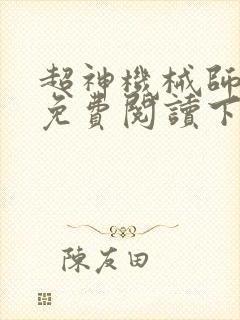 超神機械師
免費閱讀下
陳友田